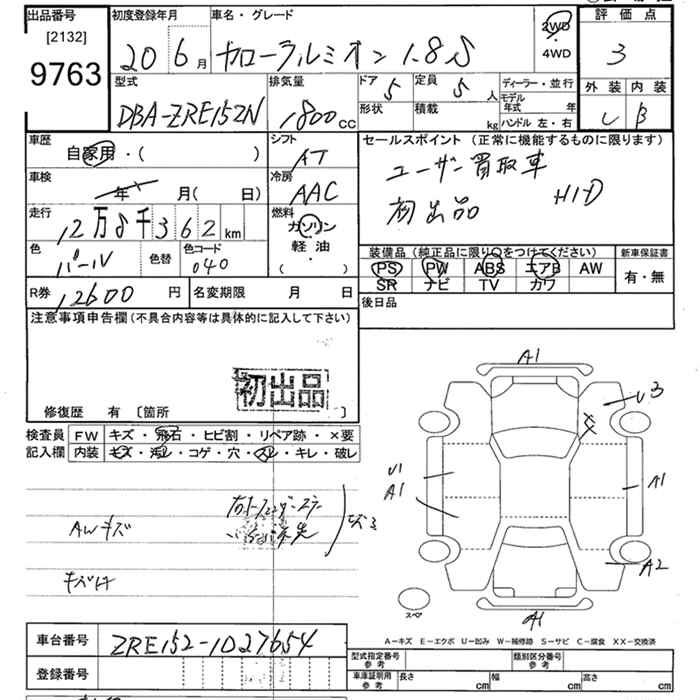 出品番号
[2132]
9763
初度登録年月
20 6月
車名・グレード
カローラルミオン 1.8S
2WD
・
4WD
評価点
3
外装 内装
B
型式
DBA-ZRE152N
排気量
1800cc
ドア
5
定員
5人
形状
積載
kg
ディーラー・並行
モデル年式 年
ハンドル 左・右
車歴
自家用・( )
シフト
AT
車検
年 月(日)
冷房
AAC
走行
12万8千362km
燃料
ガソリン
軽油
・
( )
色
パール
色替
色コード
040
セールスポイント(正常に機能するものに限ります)
ユーザー買取車
初出品 HID
装備品(純正品に限り○をつけてください)
PS PW ABS エアB AW
SR ナビ TV カワ
新車保証書
有・無
R券
12600円
名変期限 月 日
後日品
注意事項申告欄(不具合内容等は具体的に記入して下さい)
初出品
修復歴 有 [箇所 ]
検査員
記入欄
FW キズ・飛石・ヒビ割・リペア跡・×要
内装 キズ・汚レ・コゲ・穴・スレ・キレ・破レ
AWキズ
A1
U3
U1
A1
A1
A2
A1
スペ
A-キズ E-エクボ U-凹み W-補修跡 S-サビ C-腐食 XX-交換済
車台番号
ZRE152-1027654
登録番号
型式指定番号
参考
類別区分番号
参考
車庫証明用
参考
長さ cm
幅 cm
高さ cm